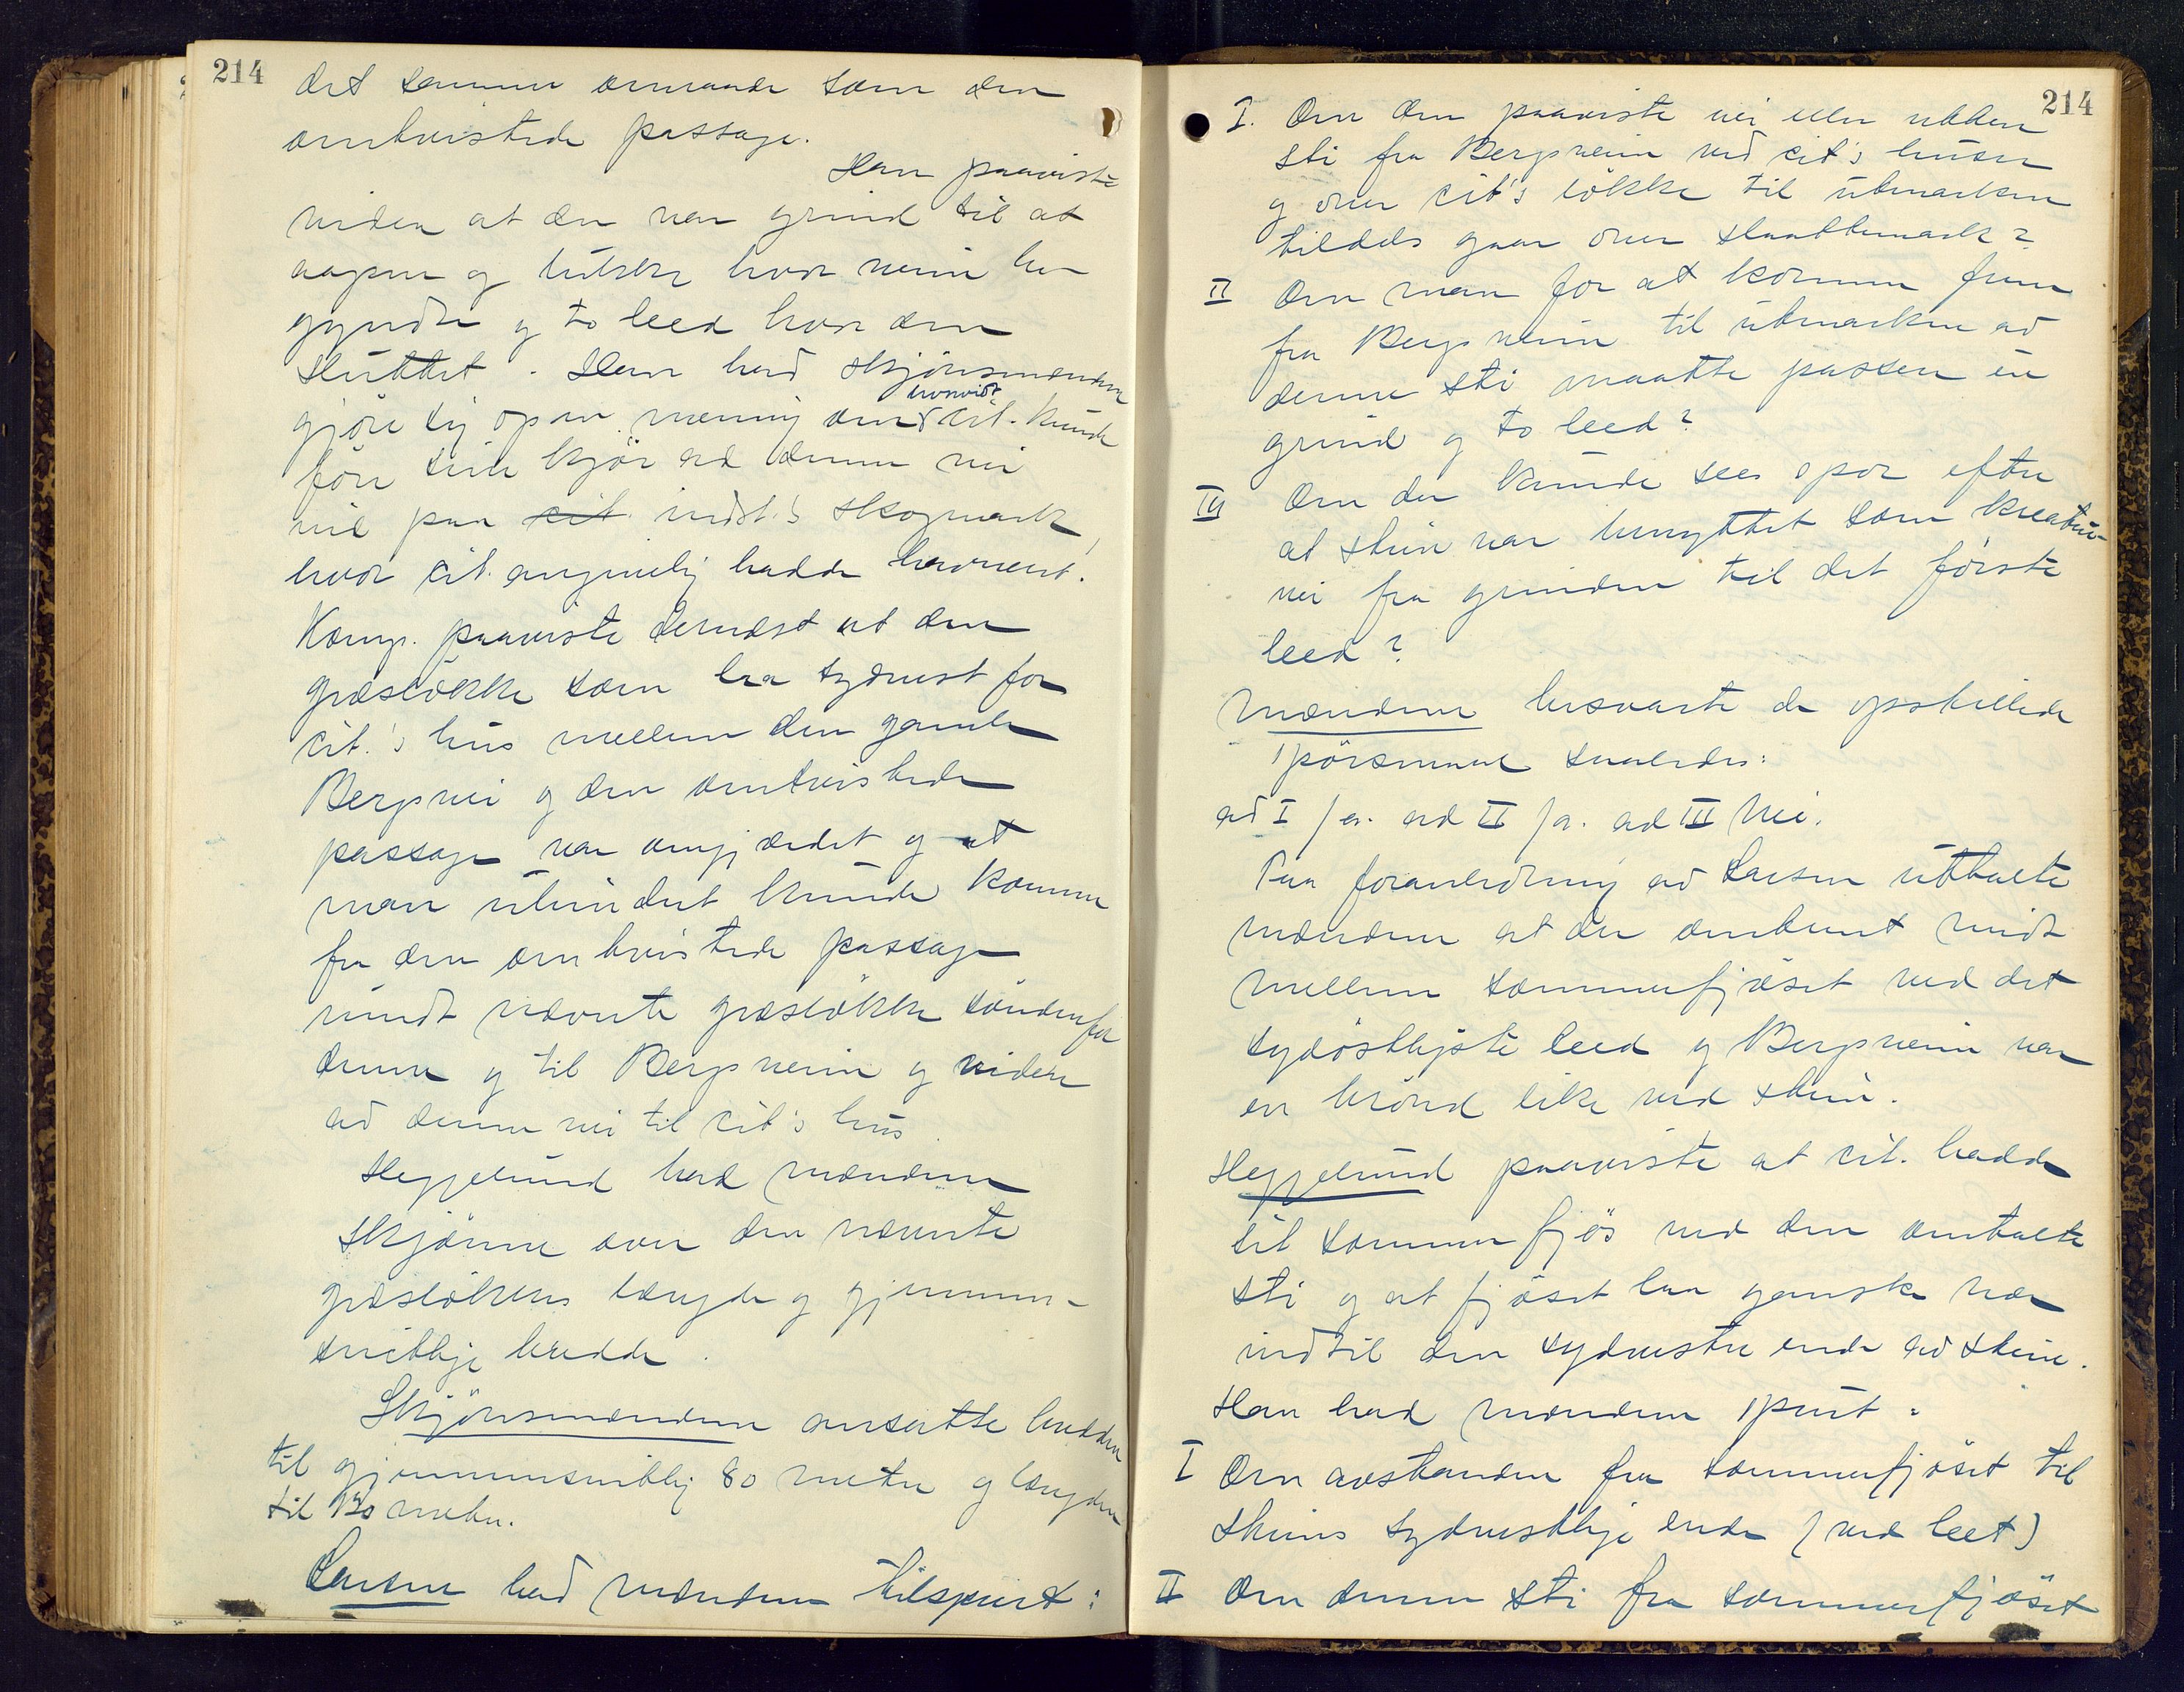 214
det samme omraade som den
omtvistede passage.
Han paaviste
viden at der var grind til at
aapne og lukke hvor veien be-
gyndte og to leed hvor den
sluttet. Han bad skjønsmændene
gjøre sig op en mening om hvorvidt cit. kunde
føre sine kjør ad denne vei
ind paa cit. indst.s skogmark,
hvor cit. angivelig hadde havneret.
Komp. paaviste dernæst at den
græsløkke som laa sydvest for
cit.'s hus mellem den gamle
Bergsvei og den omtvistede
passage var omgjærdet og at
man uhindret kunde komme
fra den omtvistede passage
rundt nævnte græsløkke søndenfor
denne og til Bergsveien og videre
ad denne vei til cit's hus.
Heggelund bad mændene
skjønne over den nævnte
græsløkkes længde og gjennem-
snitlige bredde.
Skjønsmændene ansatte bredden
til gjennemsnitlig 80 meter og længden
til 130 meter.
Larsen bad mændene tilspurt:
214
I. Om den paaviste vei eller
sti fra Bergsveien ved cit's huser
og over cit's løkke til utmarken
tildels gaar over slaattemark?
II Om man for at komme frem
fra Bergsveien til utmarken ad
denne sti maatte passere en
grind og to leed?
III Om der kunde sees spor efter
at stien var benyttet som kreatur-
vei fra grinden til det første
leed?
Mændene besvarte de opstillede
spørsmaal saaledes:
ad I ja. ad II ja. ad III Nei.
Paa foranledning av Larsen uttalte
mændene at der omtrent midt
mellem sommerfjøset ved det
sydøstligste leed og Bergsveien var
en brønd like ved stien.
Heggelund paaviste at cit. hadde
sit sommerfjøs ved den omtalte
sti og at fjøset laa ganske nær
indtil den sydvestre ende av stien.
Han bad mændene spurt:
I Om avstanden fra sommerfjøset til
stiens sydvestlige ende (ved leet)
II Om denne sti fra sommerfjøset